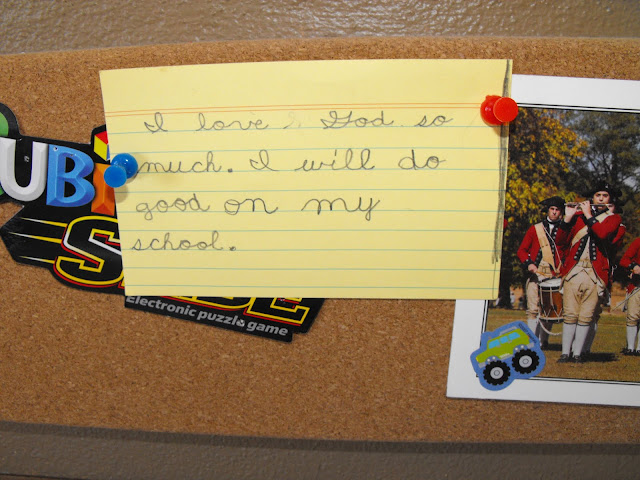 I love God so
much. I will do
good on my
school.
UBI
S
Electronic puzzle game